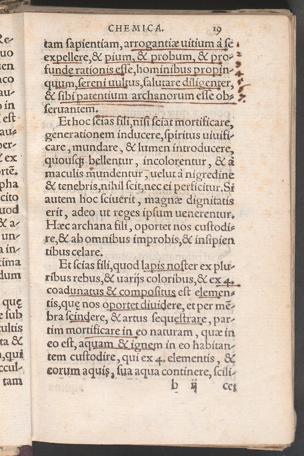 CHEMICA. 19
tam sapientiam, arrogantiæ uitium à se
expellere, & pium, & probum, & pro-
funde rationis esse, hominibus propin-
quum, sereni uultus, salutare diligenter,
& sibi patentium archanorum esse ob-
seruantem.
Et hoc scias fili, nisi sciat mortificare,
generationem inducere, spiritus uiuifi-
care, mundare, & lumen introducere,
quousque bellentur, incolorentur, & à
maculis mundentur, uelut à nigredine
& tenebris, nihil scit, nec ei perficitur. Si
autem hoc sciuerit, magnæ dignitatis
erit, adeo ut reges ipsum uenerentur.
Hæc archana fili, oportet nos custodi-
re, & ab omnibus improbis, & insipien
tibus celare.
Et scias fili, quod lapis noster ex plu-
ribus rebus, & uarijs coloribus, & ex 4.
coadunatus & compositus est elemen-
tis, que nos oportet diuidere, et per mē-
bra scindere, & artus sequestrare, par-
tim mortificare in eo naturam, quæ in
eo est, aquam & ignem in eo habitan-
tem custodire, qui ex 4. elementis, &
eorum aquis, sua aqua continere, scili-
b ij cet